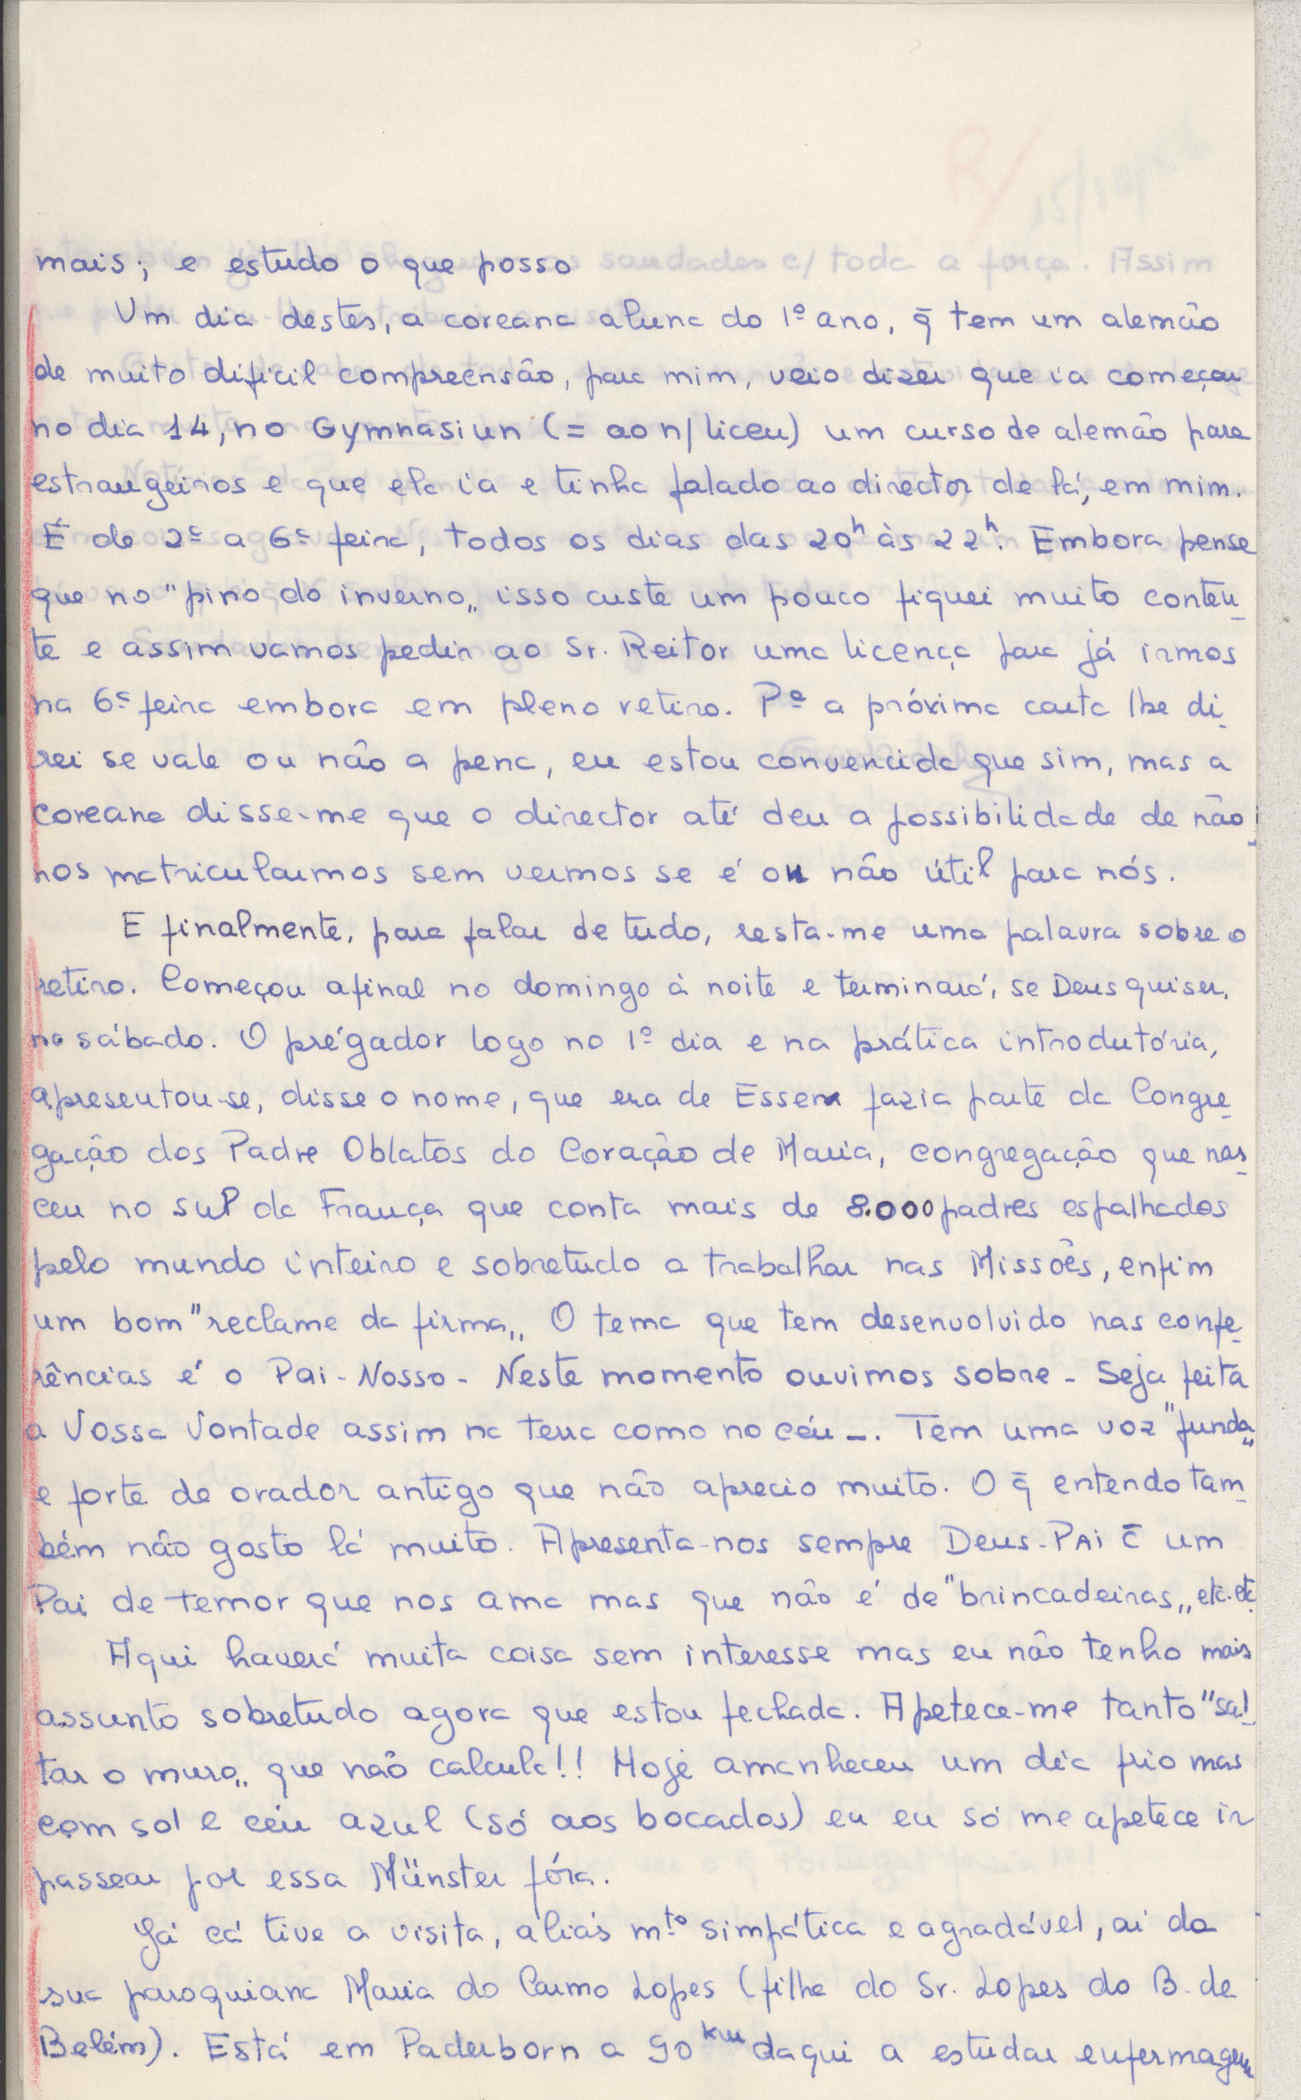 mais; e estudo o que posso
Um dia destes, a coreana aluna do 1º ano, q̃ tem um alemão
de muito dificil compreensão, para mim, veio dizer que ia começar
no dia 14, no Gymnasiun (= ao n/ liceu) um curso de alemão para
estrangeiros e que ela ia e tinha falado ao director de lá, em mim.
É de 2ª a 6ª feira, todos os dias das 20h às 22h. Embora pense
que no "pino do inverno„ isso custe um pouco fiquei muito conten-
te e assim vamos pedir ao Sr. Reitor uma licença para já irmos
na 6ª feira embora em pleno retiro. Pª a próxima carta lhe di-
rei se vale ou não a pena, eu estou convencida que sim, mas a
coreana disse-me que o director até deu a possibilidade de não
nos matricularmos sem vermos se é ou não útil para nós.
E finalmente, para falar de tudo, resta-me uma palavra sobre o
retiro. Começou afinal no domingo à noite e terminará, se Deus quiser,
no sábado. O prégador logo no 1º dia e na prática introdutória,
apresentou-se, disse o nome, que era de Essen fazia parte da Congre-
gação dos Padre Oblatos do Coração de Maria, congregação que nas-
ceu no sul da França que conta mais de 8.000 padres espalhados
pelo mundo inteiro e sobretudo a trabalhar nas Missões, enfim
um bom "reclame da firma„ O tema que tem desenvolvido nas confe-
rências é o Pai-Nosso - Neste momento ouvimos sobre - Seja feita
a Vossa Vontade assim na terra como no céu -. Tem uma voz "funda„
e forte de orador antigo que não aprecio muito. O q̃ entendo tam-
bém não gosto lá muito. Apresenta-nos sempre Deus-PAi c̄ um
Pai de temor que nos ama mas que não é de "brincadeiras„ etc. etc
Aqui haverá muita coisa sem interesse mas eu não tenho mais
assunto sobretudo agora que estou fechada. Apetece-me tanto "sal-
tar o muro„ que não calcula!! Hoje amanheceu um dia frio mas
com sol e céu azul (só aos bocados) eu eu só me apetece ir
passear por essa Münster fóra.
Já cá tive a visita, aliás mto simpática e agradável, ai da
sua paroquiana Maria do Carmo Lopes (filha do Sr. Lopes do B. de
Belém). Está em Paderborn a 90 km daqui a estudar enfermagem